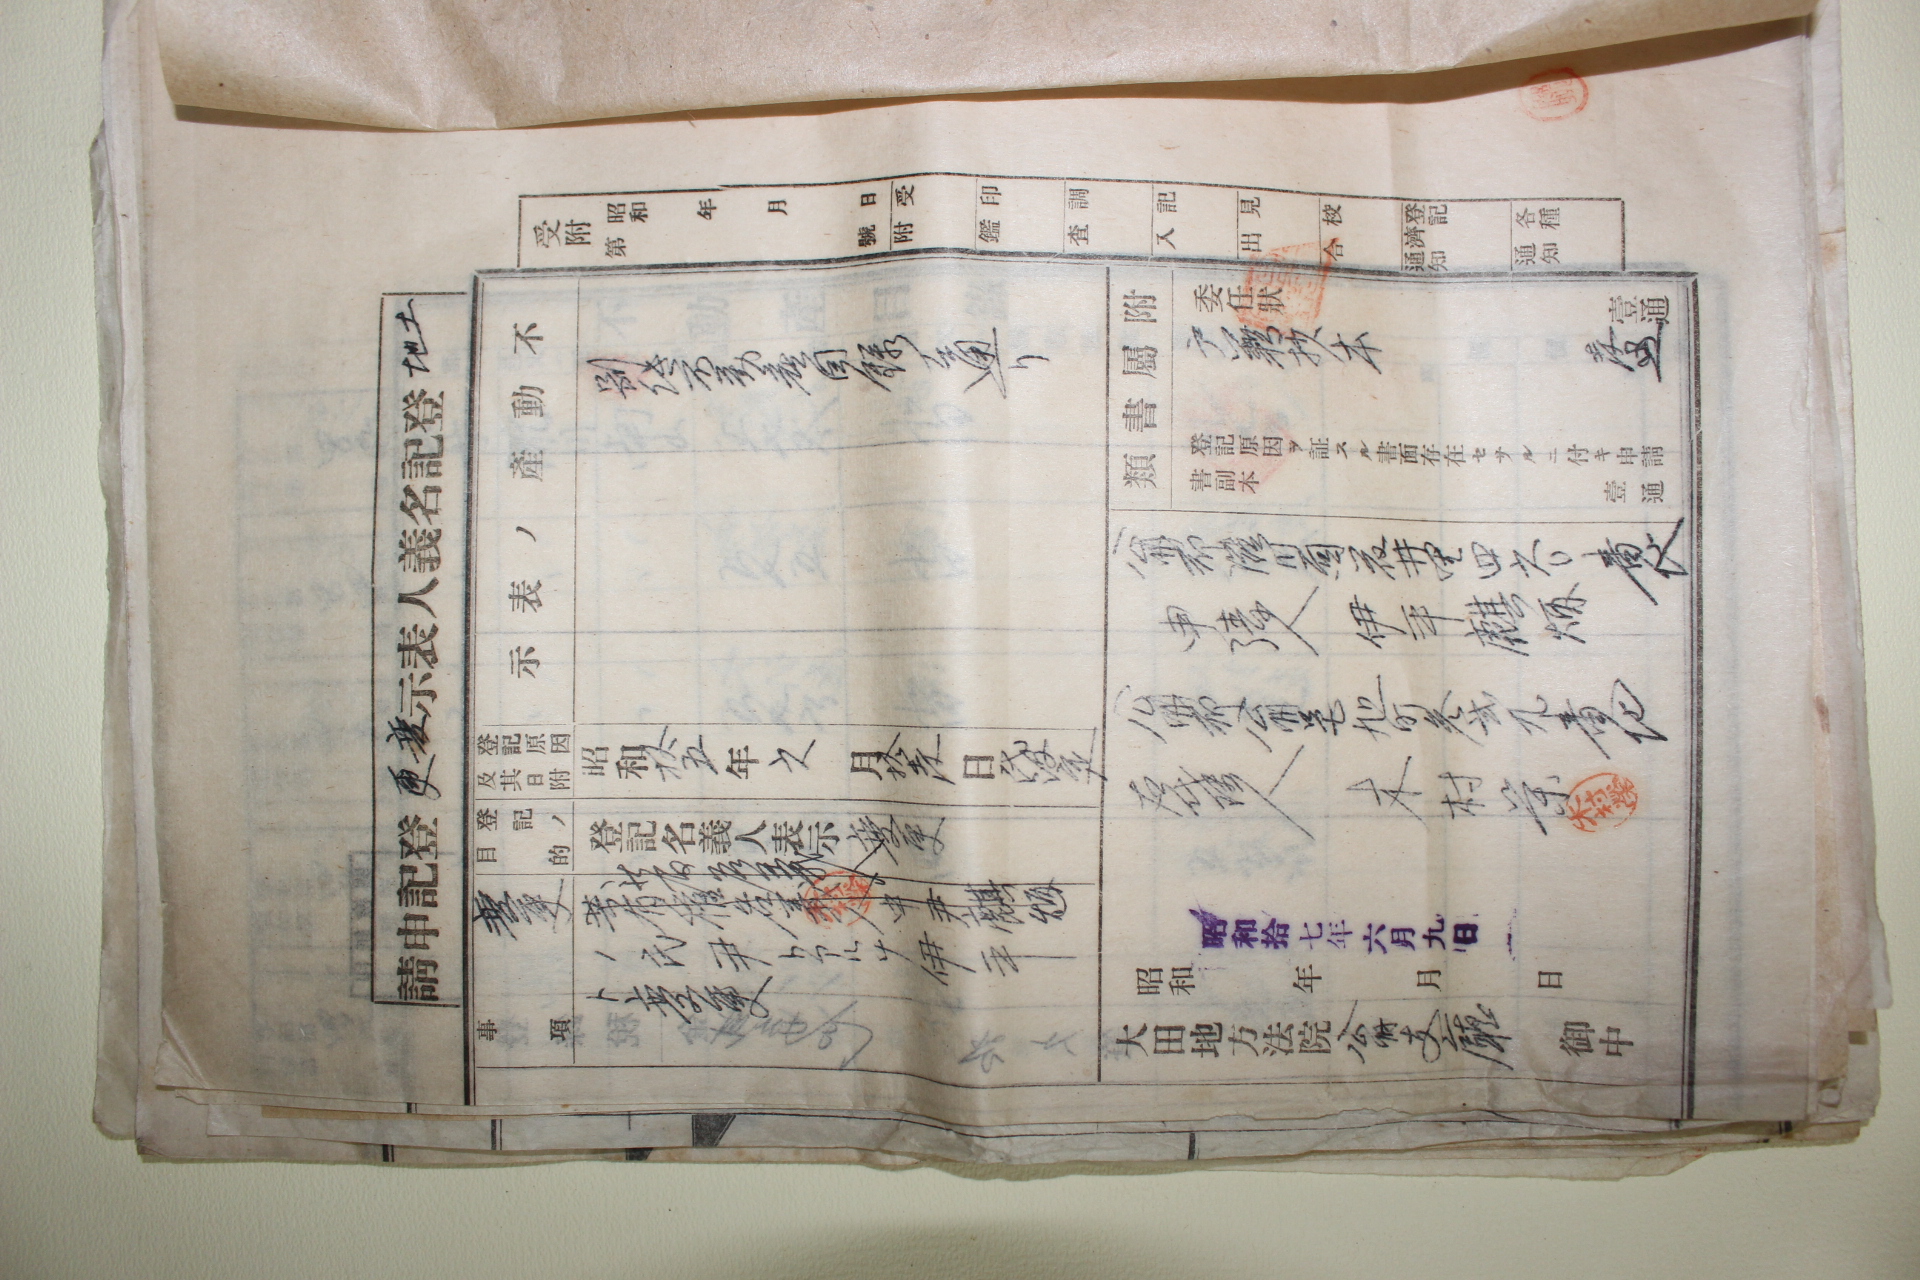 土地登記名義人表示変更登記申請
受附
昭和 年 月 日
第 號
受附
印鑑
調査
記入
見出
校合
登記濟通知
各種通知
不動產ノ表示
別紙不動産目録ノ通リ
登記原因及其日附
昭和拾五年六月拾五日氏設定
登記ノ目的
登記名義人表示変更
変更
事項
所有権名義人尹麒炳
ノ氏尹トアルヲ伊平
ト変更
附屬書類
委任狀 壹通
戸籍抄本 壹通
登記原因ヲ証スル書面存在セサルニ付キ申請
書副本 壹通
公州郡灘川面
申請人 伊平麒炳
公州郡公州邑旭町参弐九番地
右代理人 木村榮
木村榮
昭和 年 月 日
昭和拾七年六月九日
大田地方法院公州支廳 御中